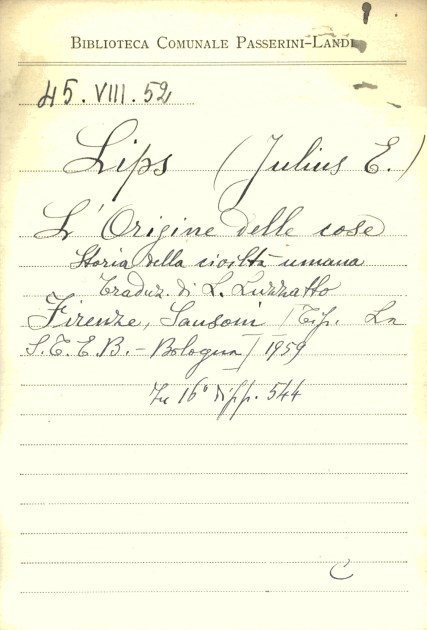 BIBLIOTECA COMUNALE PASSERINI-LANDI
45.VIII.52
Lips (Julius E.)
L'Origine delle cose
Storia della civiltà umana
Traduz. di L. Luzzatto
Firenze, Sansoni [Tip. La
S.E.E.B. - Bologna] 1959
In 16° di pp. 544
C